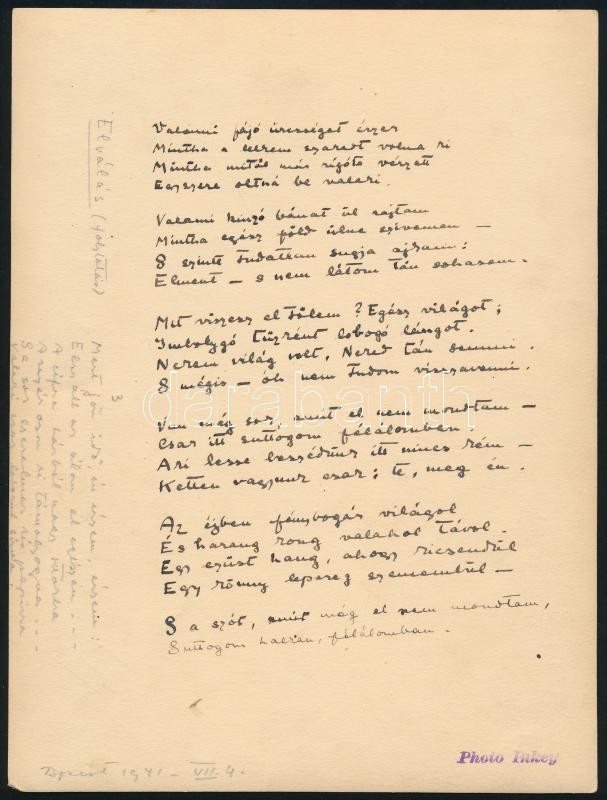 Valami fájó ürességet érzek
Mintha a lelkem szaladt volna ki
Mintha mitől más rigóta vérzett
Egyszere oltná be valaki.
Valami kinzó bánat ül rajtam
Mintha egész föld ülne szivemen –
S szinte tudatlan sugja ajkam:
Elment – s nem látom tán sohasem.
Mit viszesz el tőlem? Egész világot;
Imbolygó tüzként lobogó lángot.
Nekem világ volt, Neked tán semmi.
S mégis – óh nem tudom visszavenni.
Van még szó, amit el nem mondtam –
Csak itt suttogom félálomban
Aki lesse beszédünk itt nincs rém –
Ketten vagyunk csak; te, meg én.
Az éjben fénybogár világol
És harang kong valahol távol.
Egy ezüst hang, ahogy kicsendül
Egy könny lepereg szemembül –
S a szót, mit még el nem mondtam,
Suttogom halkan, félálomban.
Elválás (folytatás)
3
Mert jön idő, én érzem, érzem:
Bpest 1941 – VII. 4.
Photo Inkey
darabanth